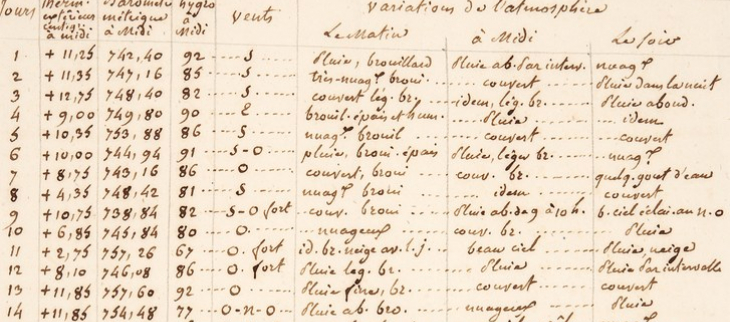 Jours Therm. extérieur centigr. à midi Baromètre métrique à Midi hygro à Midi Vents Variations de l'atmosphère
Le Matin à Midi Le soir
1 + 11,25 742,40 92 S Pluie, brouillard Pluie ab. par interv. nuag.x
2 + 11,35 747,16 85 S très-nuag.x broui couvert Pluie dans la nuit
3 + 12,75 748,40 82 S couvert lég. br. idem, lég. br. Pluie abond.
4 + 9,00 749,80 90 E brouil. épais et hum. Pluie idem
5 + 10,35 753,88 86 S nuag.x brouil couvert couvert
6 + 10,00 744,94 91 S-O pluie, broui. épais Pluie, léger br. nuag.x
7 + 8,75 743,16 86 O couvert, broui couv. br. quelq. gout. d'eau
8 + 4,35 748,42 81 S nuag.x broui idem couvert
9 + 10,75 738,84 82 S-O fort couv. broui Pluie ab. de 9 à 10 h. b. ciel éclai. au N.O
10 + 6,85 745,84 80 O nuageux couv. br. Pluie
11 + 2,75 757,26 67 O. fort id. br. neige av. l. j. beau ciel Pluie, neige
12 + 8,10 746,08 86 O. fort Pluie leg. br. Pluie Pluie par intervalle
13 + 11,85 757,60 92 O Pluie fine, br. couvert couvert
14 + 11,85 754,48 77 O-N-O Pluie ab. bro. nuageux Pluie